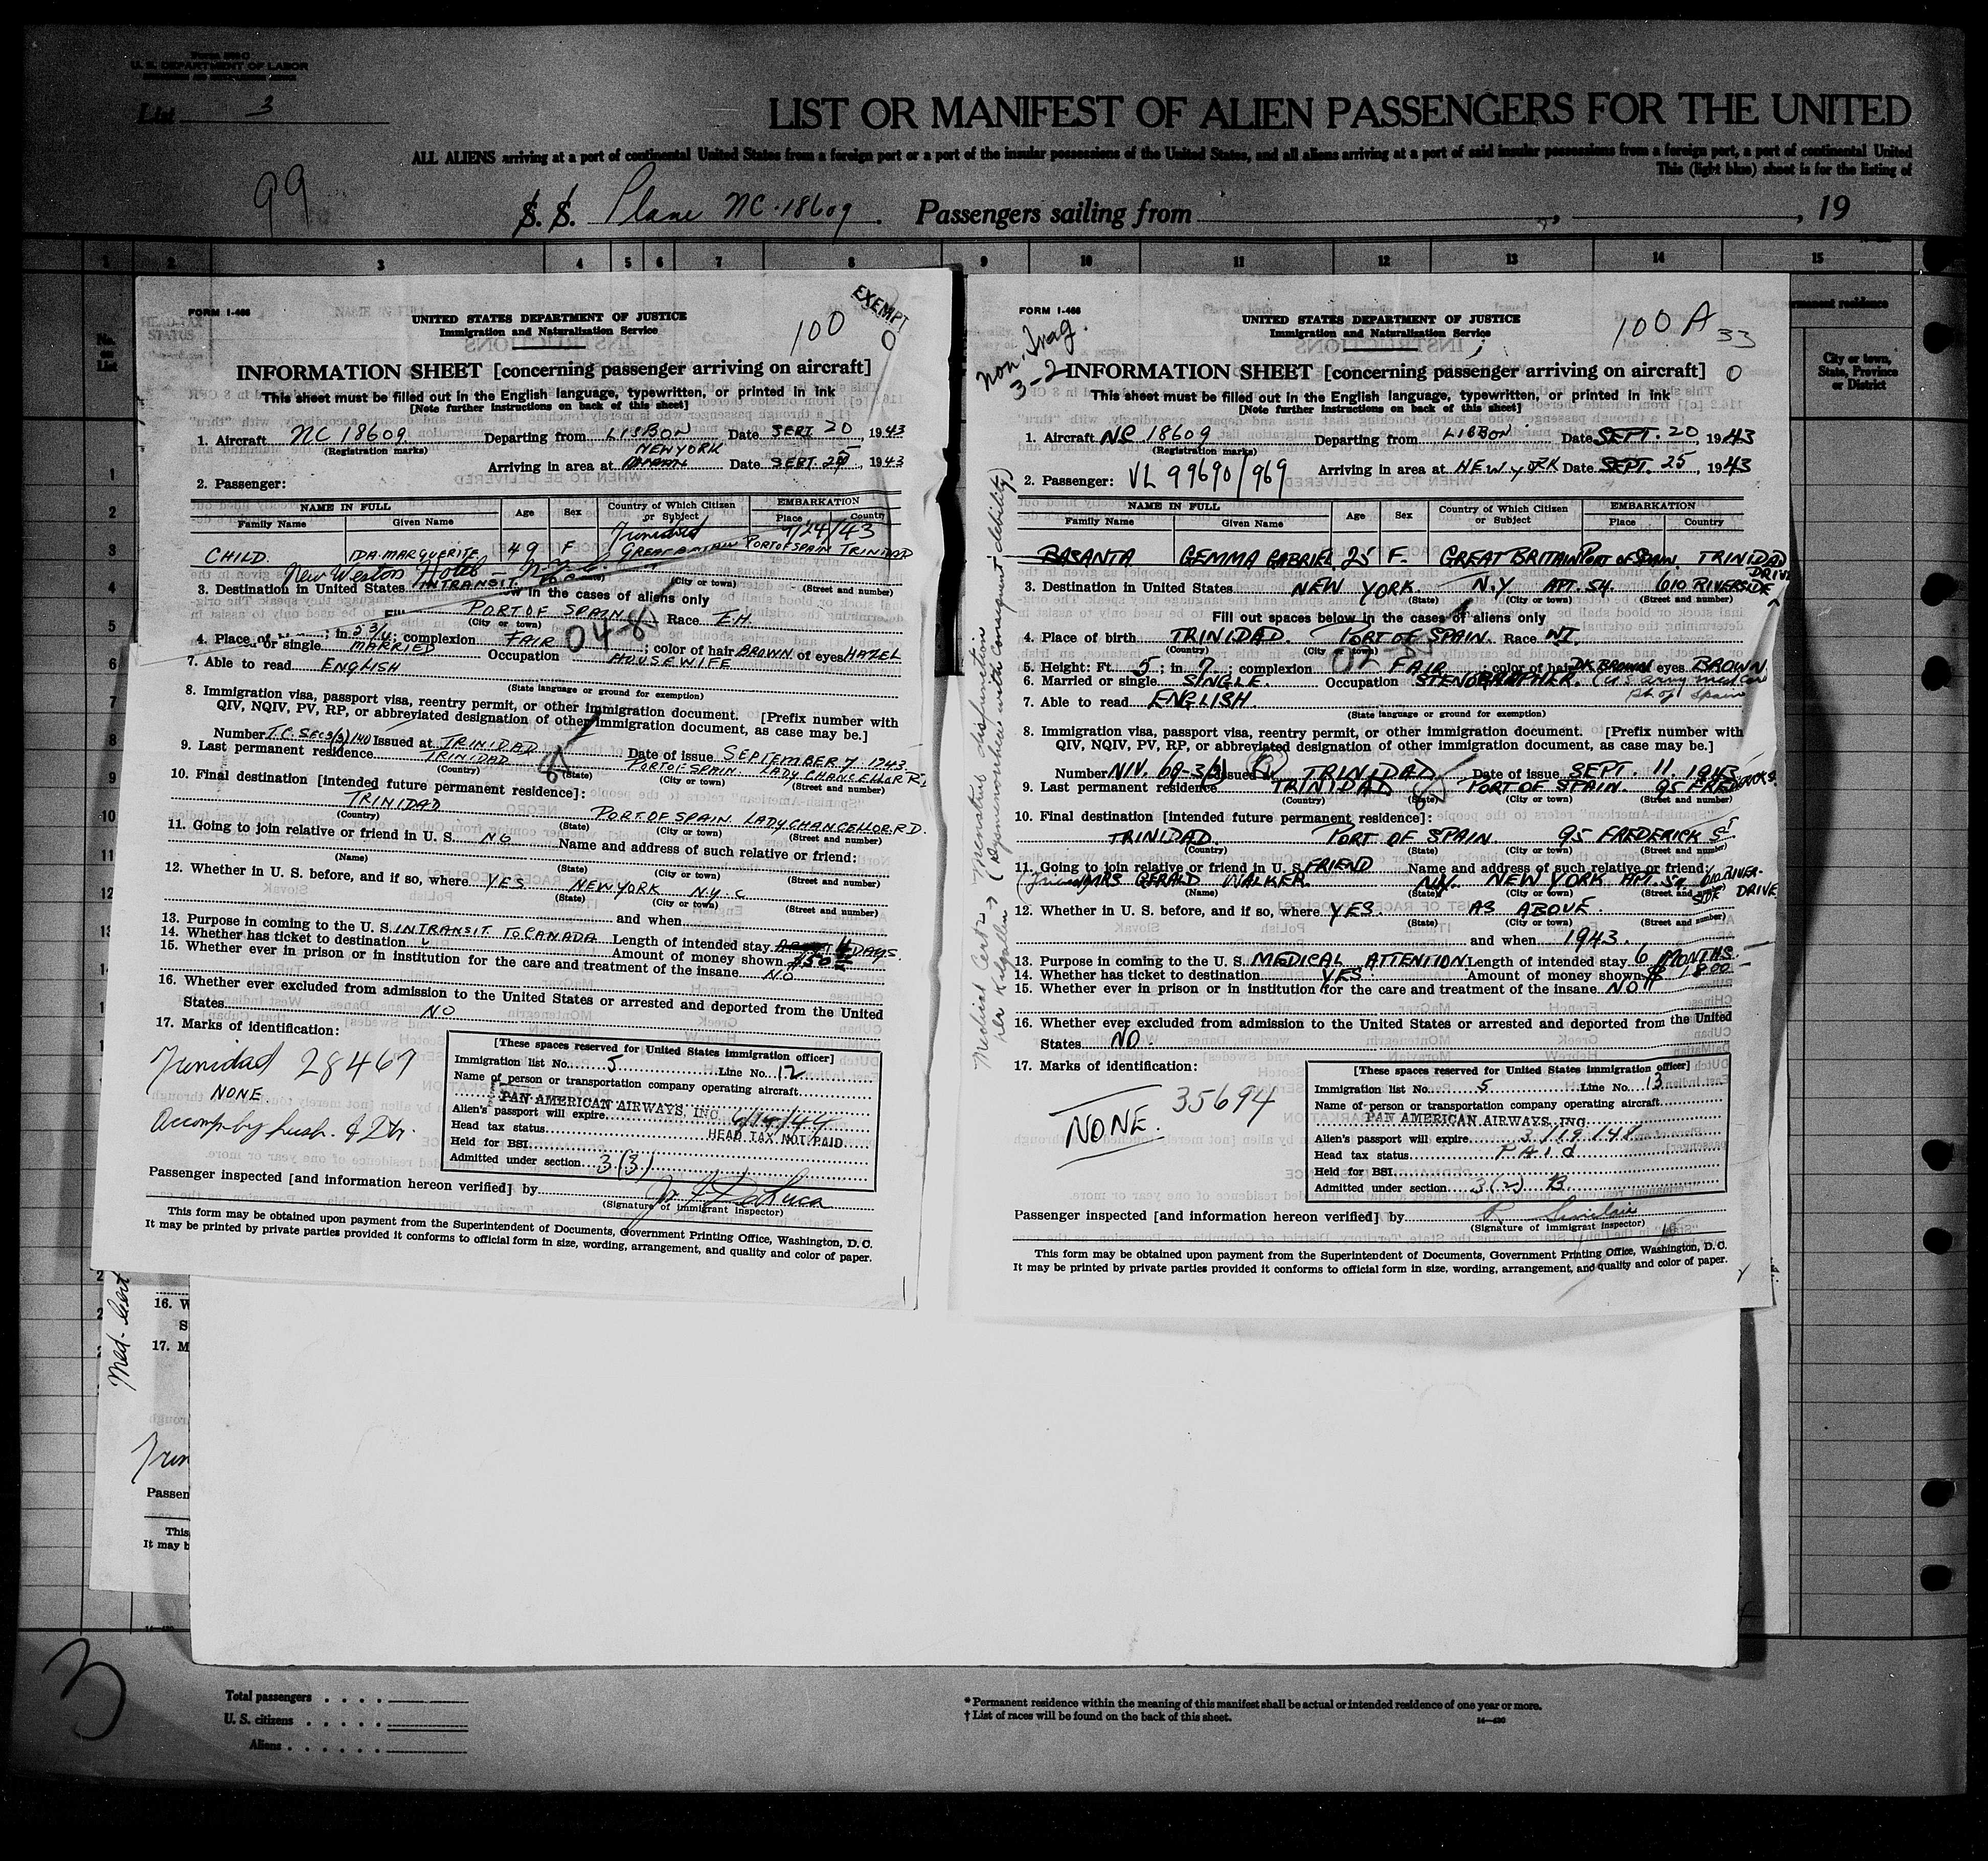 Form 630
U. S. DEPARTMENT OF LABOR
List 3
LIST OR MANIFEST OF ALIEN PASSENGERS FOR THE UNITED
ALL ALIENS arriving at a port of continental United States from a foreign port or a port of the insular possessions of the United States, and all aliens arriving at a port of said insular possessions from a foreign port, a port of continental United
This (light blue) sheet is for the listing of
99
S. S. Plane NC-18609 Passengers sailing from , , 19
1 2 3 4 5 6 7 8 9 10 11 12 13 14 15
No. on List
permanent residence
City or town, State, Province or District
FORM I-466
UNITED STATES DEPARTMENT OF JUSTICE
Immigration and Naturalization Service
100
EXEMPT
0
INFORMATION SHEET [concerning passenger arriving on aircraft]
This sheet must be filled out in the English language, typewritten, or printed in ink
[Note further instructions on back of this sheet]
1. Aircraft NC 18609 Departing from LISBON Date SEPT 20, 1943
(Registration marks)
NEW YORK
Arriving in area at Date SEPT 25, 1943
2. Passenger:
NAME IN FULL Age Sex Country of Which Citizen or Subject EMBARKATION
Family Name Given Name Place Country
Trinidad 9/24/43
CHILD. IDA MARGUERITE 49 F GREAT BRITAIN PORT OF SPAIN TRINIDAD
New Weston Hotel - N.Y.C.
3. Destination in United States INTRANSIT
(City or town) (Street and number)
w in the cases of aliens only
Fill
4. Place of PORT OF SPAIN Race EH.
(City or town)
; in 5 3/4; complexion FAIR 04-8 ; color of hair BROWN of eyes HAZEL
or single MARRIED Occupation HOUSEWIFE
7. Able to read ENGLISH
(State language or ground for exemption)
8. Immigration visa, passport visa, reentry permit, or other immigration document. [Prefix number with
QIV, NQIV, PV, RP, or abbreviated designation of other immigration document, as case may be.]
Number T.C. SEC 3(3) 140 Issued at TRINIDAD Date of issue SEPTEMBER 7. 1943.
9. Last permanent residence TRINIDAD PORT OF SPAIN LADY CHANCELLOR R.
(Country) (State) (City or town) (Street and number)
10. Final destination [intended future permanent residence]:
TRINIDAD PORT OF SPAIN LADY CHANCELLOR RD.
(Country) (State) (City or town) (Street and number)
11. Going to join relative or friend in U. S. NO Name and address of such relative or friend:
(Name) (State) (City or town) (Street and number)
12. Whether in U. S. before, and if so, where YES NEW YORK N.Y. C
(State) (City or town) (Street and number)
and when
13. Purpose in coming to the U. S. INTRANSIT TO CANADA Length of intended stay 4 DAYS.
14. Whether has ticket to destination Amount of money shown $50
15. Whether ever in prison or in institution for the care and treatment of the insane NO
16. Whether ever excluded from admission to the United States or arrested and deported from the United
States NO
17. Marks of identification:
Trinidad 28467
NONE.
Accomp. by husb. & Dtr.
[These spaces reserved for United States immigration officer]
Immigration list No. 5 Line No. 12
Name of person or transportation company operating aircraft
PAN AMERICAN AIRWAYS, INC.
Alien's passport will expire 6/14/44
Head tax status HEAD TAX NOT PAID
Held for BSI
Admitted under section 3(3)
Passenger inspected [and information hereon verified] by
(Signature of immigrant inspector)
This form may be obtained upon payment from the Superintendent of Documents, Government Printing Office, Washington, D. C.
It may be printed by private parties provided it conforms to official form in size, wording, arrangement, and quality and color of paper.
FORM I-466
UNITED STATES DEPARTMENT OF JUSTICE
Immigration and Naturalization Service
100 A 33
0
3-2
INFORMATION SHEET [concerning passenger arriving on aircraft]
This sheet must be filled out in the English language, typewritten, or printed in ink
[Note further instructions on back of this sheet]
1. Aircraft NC 18609 Departing from LISBON Date SEPT. 20 1943
(Registration marks)
Arriving in area at NEW YORK Date SEPT. 25 1943
2. Passenger: VL 99690/969
NAME IN FULL Age Sex Country of Which Citizen or Subject EMBARKATION
Family Name Given Name Place Country
BASANTA GEMMA GABRIEL 25 F. GREAT BRITAIN PORT OF SPAIN. TRINIDAD
3. Destination in United States NEW YORK N.Y. APT. 54. 610 RIVERSIDE DRIVE
(State) (City or town) (Street and number)
Fill out spaces below in the cases of aliens only
4. Place of birth TRINIDAD. PORT OF SPAIN. Race WI.
(Country) (City or town)
5. Height: Ft. 5; in 7; complexion FAIR; color of hair DK BROWN eyes BROWN
6. Married or single SINGLE. Occupation STENOGRAPHER. (U S Army Med Corp
Pt of Spain
7. Able to read ENGLISH.
(State language or ground for exemption)
8. Immigration visa, passport visa, reentry permit, or other immigration document. [Prefix number with
QIV, NQIV, PV, RP, or abbreviated designation of other immigration document, as case may be.]
Number NIV. 69-3(2) Issued at TRINIDAD Date of issue SEPT. 11. 1943
9. Last permanent residence TRINIDAD PORT OF SPAIN. 95 FREDERICK S.
(Country) (State) (City or town) (Street and number)
10. Final destination [intended future permanent residence]:
TRINIDAD. PORT OF SPAIN 95 FREDERICK ST
(Country) (State) (City or town) (Street and number)
11. Going to join relative or friend in U. S. FRIEND Name and address of such relative or friend:
(Friend) MRS GERALD WALKER. N.Y. NEW YORK APT. 54 610 RIVERSIDE DRIVE
(Name) (State) (City or town) (Street and number)
12. Whether in U. S. before, and if so, where YES. AS ABOVE.
(State) (City or town) (Street and number)
and when 1943.
13. Purpose in coming to the U. S. MEDICAL ATTENTION. Length of intended stay 6 MONTHS.
14. Whether has ticket to destination YES. Amount of money shown $ 1800
15. Whether ever in prison or in institution for the care and treatment of the insane NO
16. Whether ever excluded from admission to the United States or arrested and deported from the United
States NO.
17. Marks of identification:
NONE. 35694
[These spaces reserved for United States immigration officer]
Immigration list No. 5 Line No. 13
Name of person or transportation company operating aircraft
PAN AMERICAN AIRWAYS, INC.
Alien's passport will expire 3/19/48
Head tax status Paid
Held for BSI
Admitted under section 3(2) B.
Passenger inspected [and information hereon verified] by R Sinclair
(Signature of immigrant inspector)
This form may be obtained upon payment from the Superintendent of Documents, Government Printing Office, Washington, D. C.
It may be printed by private parties provided it conforms to official form in size, wording, arrangement, and quality and color of paper.
Medical Cert 2 → menstrual disfunction
(Dysmenorrhea with consequent debility)
Med. Cert
16. W
S
17. M
Passen
This
It may b
3
Total passengers
U. S. citizens
Aliens
* Permanent residence within the meaning of this manifest shall be actual or intended residence of one year or more.
† List of races will be found on the back of this sheet.